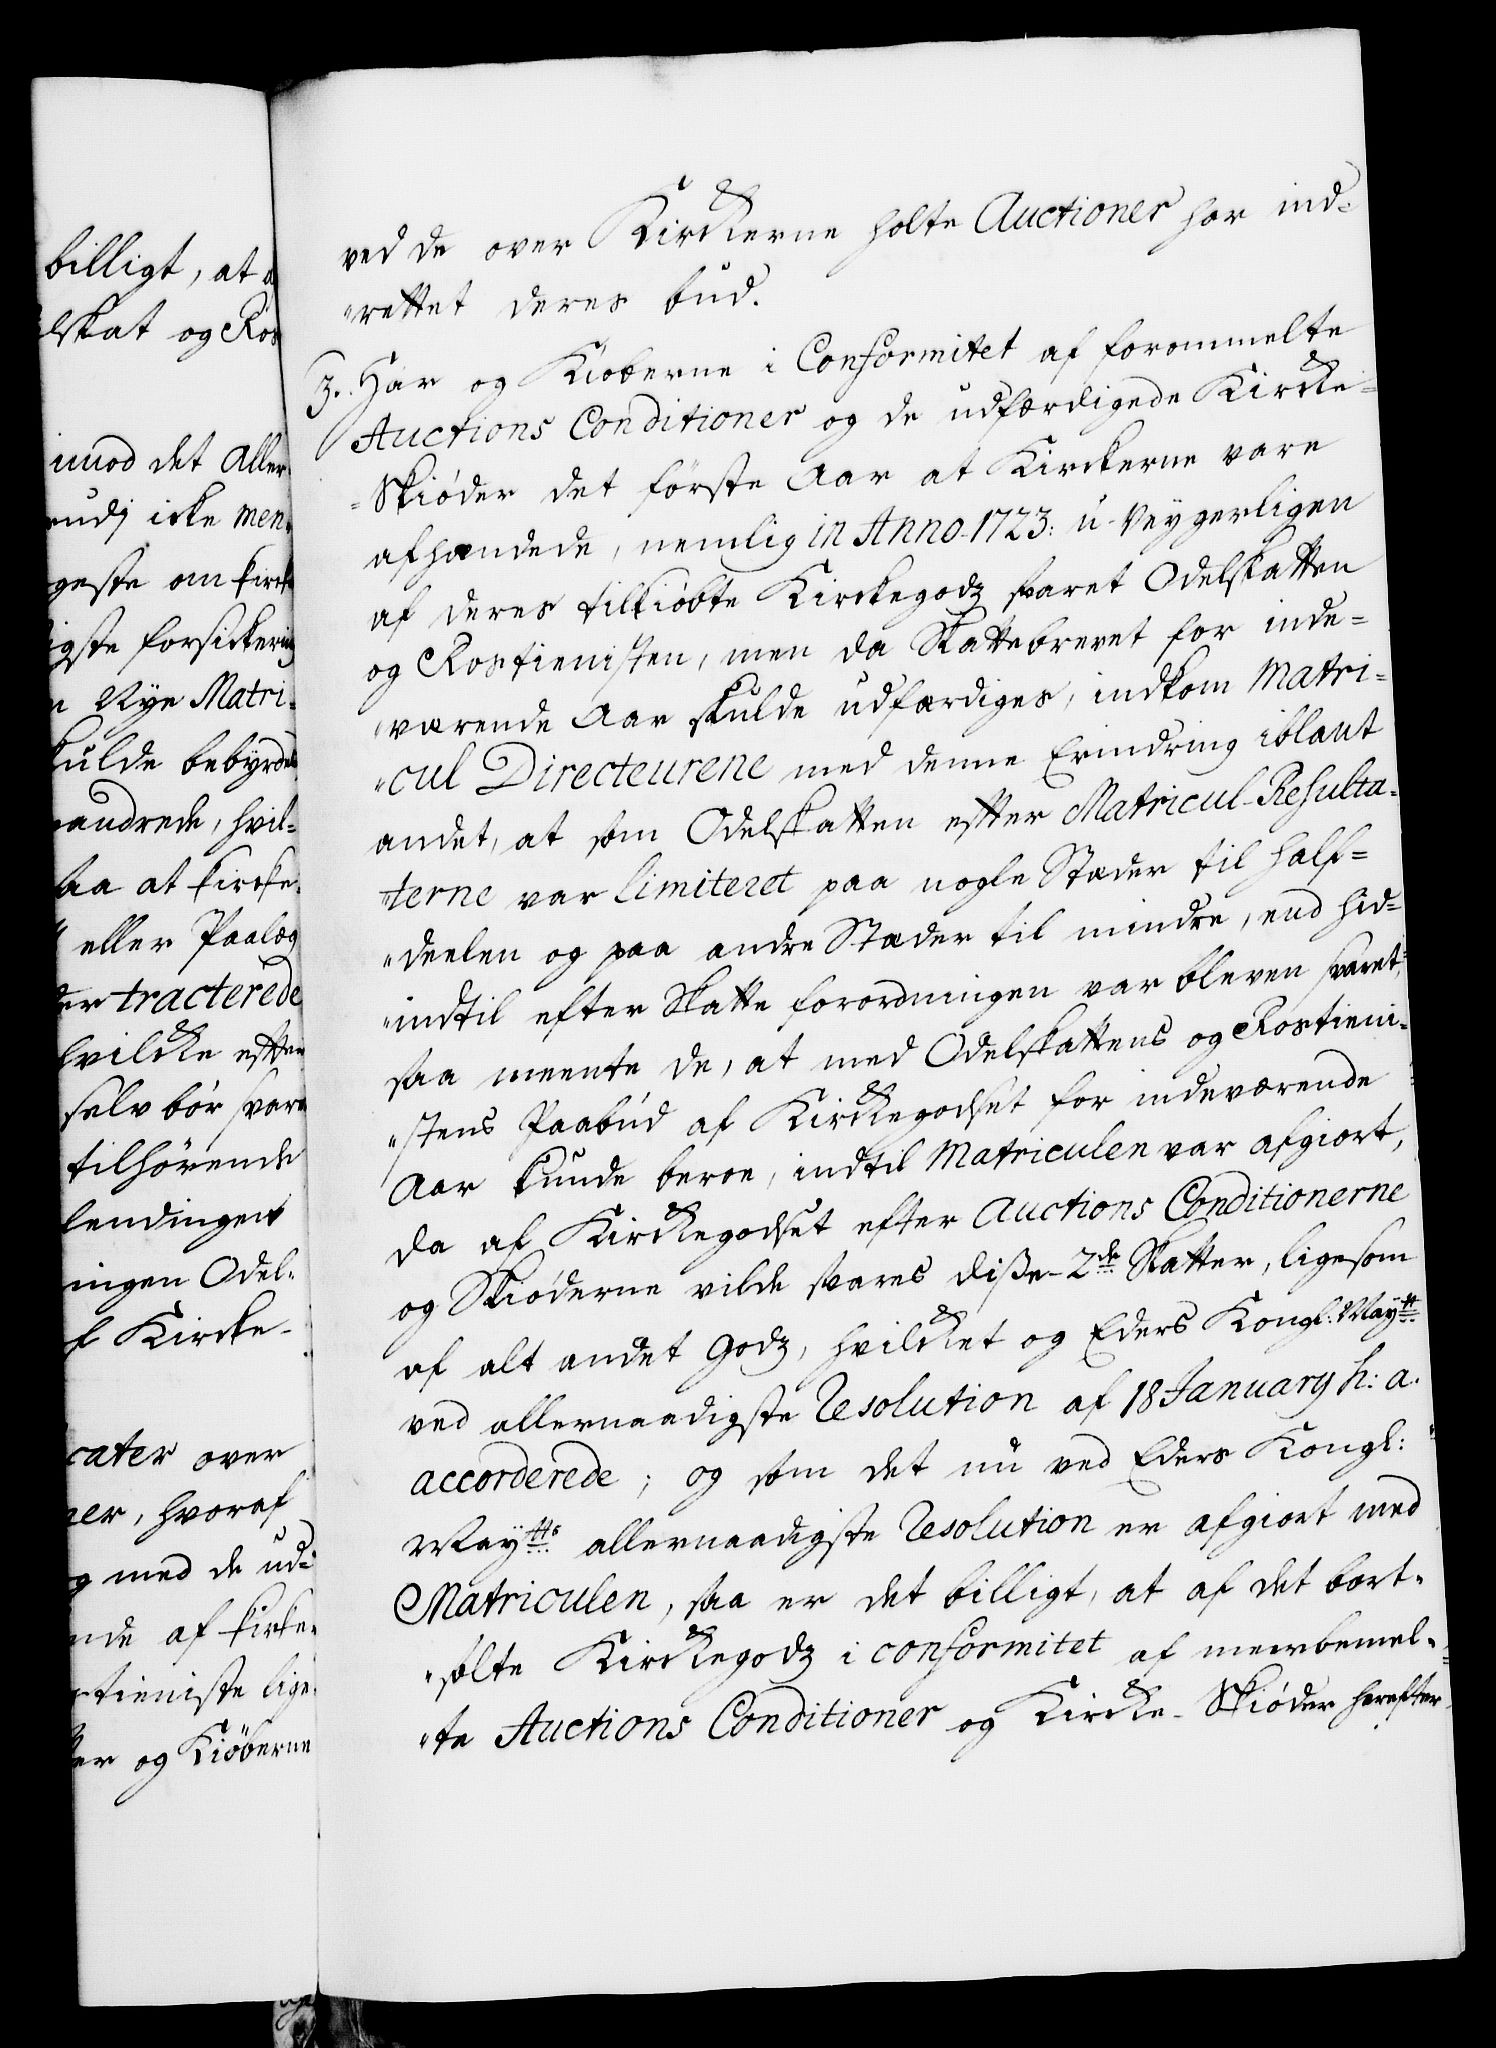 billigt, at
lskat og Ros
imod det Aller
endj icke men
geste om kirck
igste forsickering
n Nye Matri-
kulde bebyrdes
andrede, hvil-
paa at kircke-
eller Paalæg
der tracterede
hvilcke efter
selv bör svare
tilhörende
lendingen
ningen Odel-
f Kircke-
cater over
ner, hvoraf
og med de ud-
nde af kircke-
stieniste lige-
ter og Kiöberne
ved de over Kirckerne holte Auctioner har ind-
"rettet deres bud.
3. Har og Kiøberne i Conformitet af forommelte
Auctions Conditioner og de udfærdigede Kircke-
-Skiøder det förste Aar at Kirckerne vare
afhændede, nemlig in Anno 1723: u-veygerligen
af deres tilkiøbte Kirckegodz svaret Odelskatten
og Rostienisten, men da Skattebrevet for inde-
"værende Aar skulde udfærdiges, indkom Matri-
"cul Directeurene med denne Erindring iblant
andet, at som Odelskatten efter Matricul-Resulta-
"terne var limiteret paa nogle Stæder til half-
"deelen og paa andre Stæder til mindre, end hid-
"indtil efter Skatte forordningen var bleven svaret,
saa meente de, at med Odelskattens og Rostieni-
"stens Paabud af Kirckegodset for indeværende
Aar kunde beroe, indtil Matriculen var afgiort,
da af Kirckegodset efter Auctions Conditionerne
og Skiøderne vilde svares disse 2de Skatter, ligesom
af alt andet Godz, hvilcket og Eders Kongl: Maytt
ved allernaadigste Resolution af 18 January h: a.
accorderede; og som det nu ved Eders Kongl:
Maytts allernaadigste Resolution er afgiort med
Matriculen, saa er det billigt, at af det bort-
"solte Kirckegodz i conformitet af meerbemel-
"te Auctions Conditioner og Kircke-Skiøder herefter